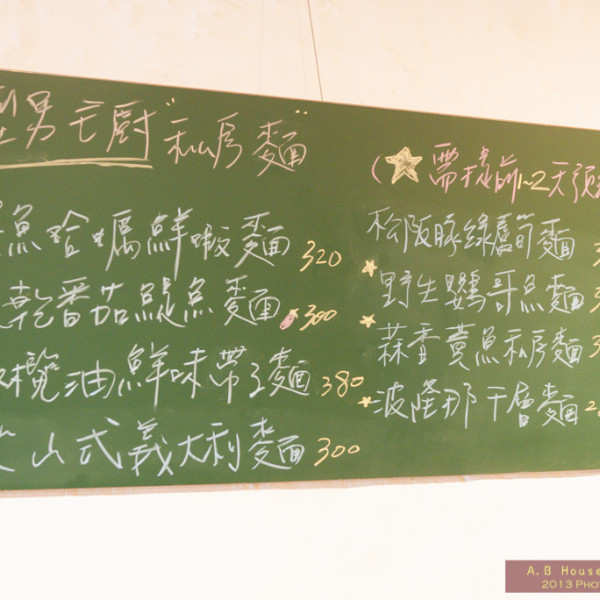 型男主廚"私房麵"
魚哈嗎鮮蝦麵 320
乾番茄鯷魚麵 300
欖油鮮味帶子麵 380
山式義大利麵 300
(☆需提前1~2天預
松阪豚綠蘆筍麵 3
☆野生鸚哥魚麵 3
☆蒜香黃魚私房麵 3
☆波隆那千層麵 2
A.B House
2013 PHOT